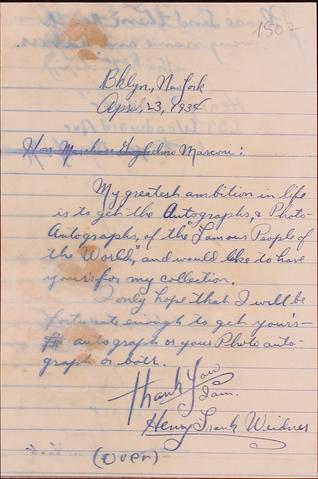 1507
Bklyn., New York
Apr. 23, 1934
Hon Marchese Guglielmo Marconi:
My greatest ambition in life
is to get the Autographs, & Photo-
Autographs, of the "Famous People of
the World", and would like to have
your's for my collection.
I only hope that I will be
fortunate enough to get your's-
autograph or your Photo auto-
graph or both.
Thank You
I am.
Henry Frank Weidner
(over)